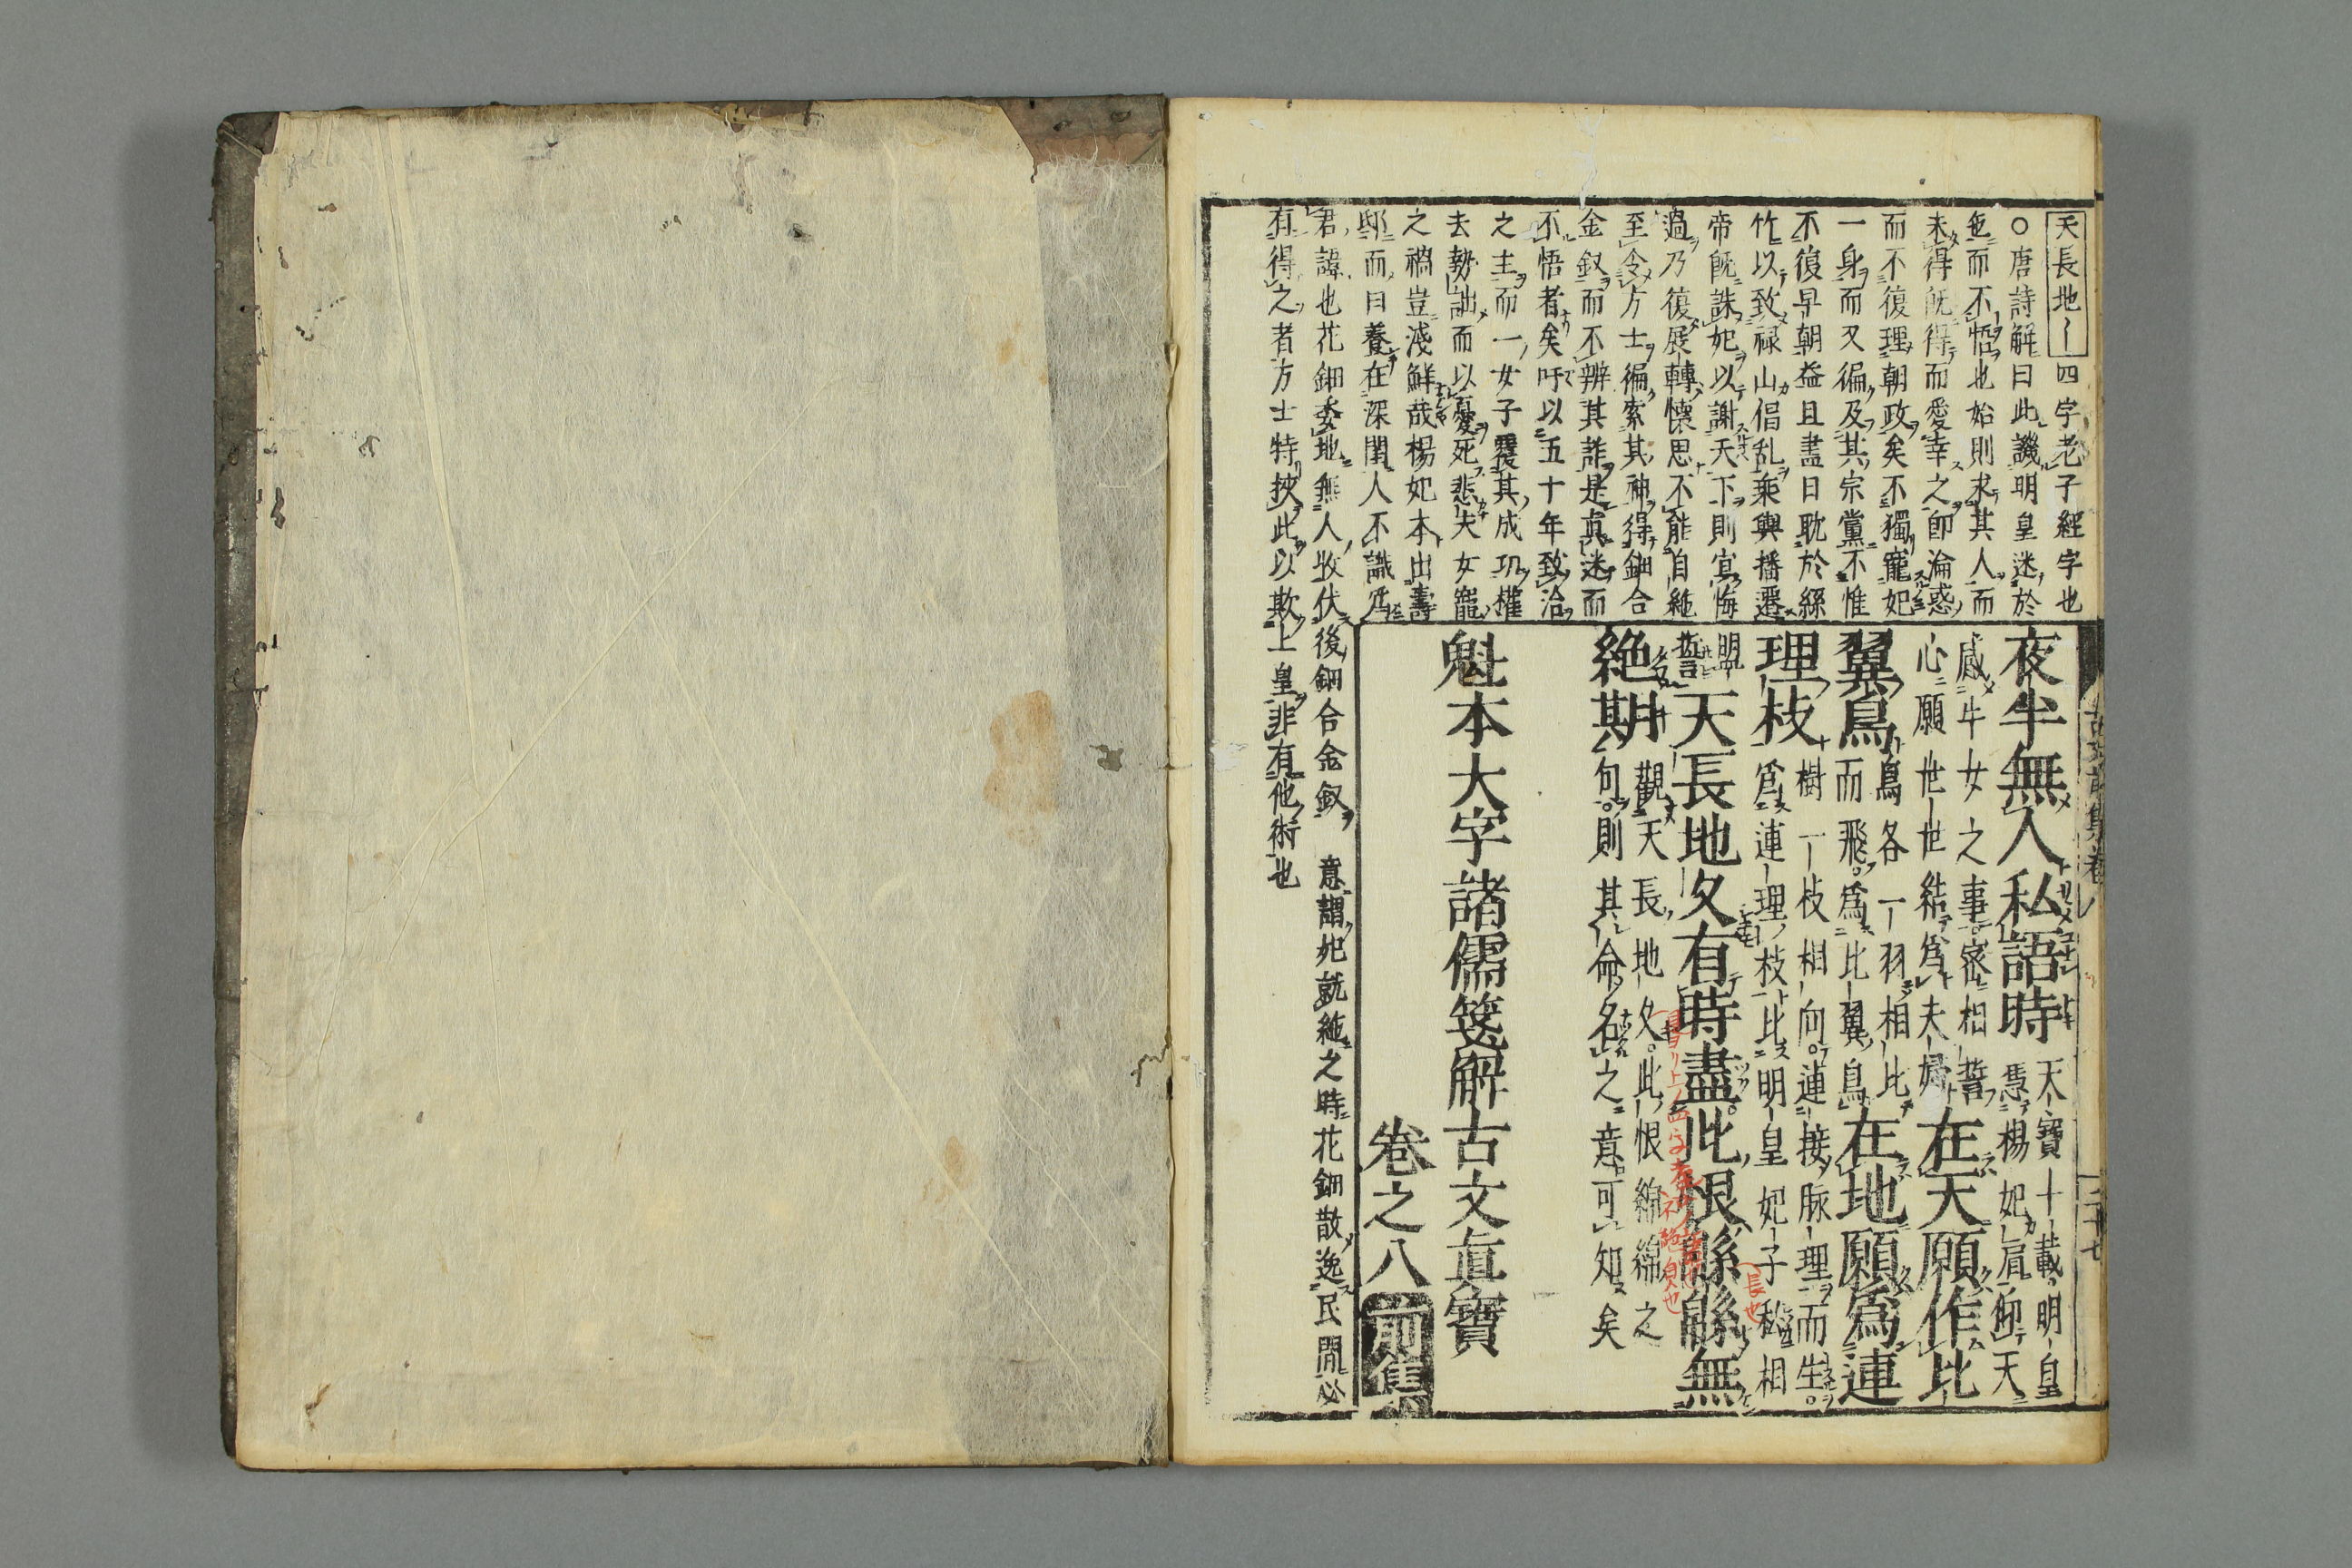 天長地｜四字老子經字也
○唐詩解曰此譏明皇迷於
色而不悟也始則求其人而
未得既得而愛幸之即淪惑
而不復理朝政矣不獨寵妃
一身而又徧及其宗黨不惟
不復早朝益且盡日耽於絲
竹以致祿山倡乱乘輿播遷
帝既誅妃以謝天下則宜悔
過乃復展轉懷思不能自絶
至令方士徧索其神得鈿合
金釵而不辨其詐是真迷而
不悟者矣吁以五十年致治
之主而一女子覆其成功權
去勢詘而以憂死悲夫女寵
之禍豈淺鮮哉楊妃本出壽
邸而曰養在深閨人不識爲
君諱也花鈿委地無人收伏後鈿合金釵 意謂妃就絶之時花鈿散逸民間必
有得之者方士特挾此以欺上皇非有他術也
古文前集卷八
二十七
夜半無人私語時
天寶十載明皇
憑楊妃肩仰天
感牛女之事密相誓
心願世世結爲夫婦
在天願作比
翼鳥
鳥各一羽相比
而飛爲比翼鳥
在地願爲連
理枝
樹一枝相向連接脉理而生
爲連理枝比明皇妃子私相
盟
誓
天長地久有時盡此恨緜緜無
長也
絶期
觀天長地久此恨綿綿之
句則其命名之意可知矣
魁本大字諸儒箋解古文眞寶
卷之八
前集